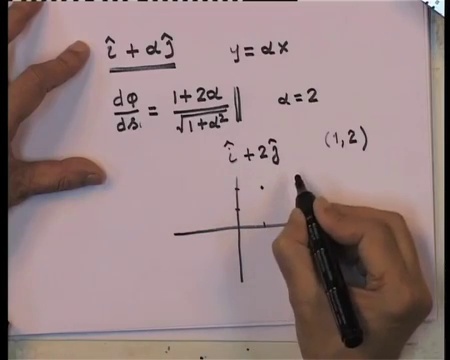 î + αĵ y = αx
dφ/ds = (1+2α)/√(1+α²) α = 2
î + 2ĵ (1,2)